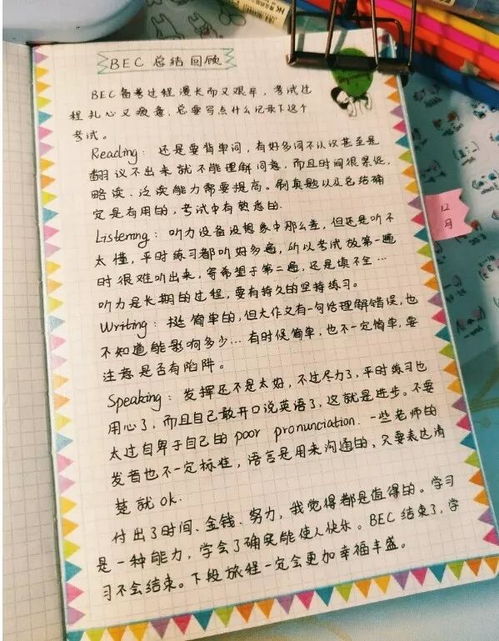 BEC 总结回顾
BEC备考过程漫长而又艰辛，考试过
程扎心又疲惫，总要写点什么记录下这个
考试。
Reading：还是要背单词，有好多词不认识甚至是
翻议不出来就不能理解问意，而且时间很紧迫，
略读、泛读能力需要提高。刷真题以及总结确
定是有用的，考试中有熟悉的.
Listening：听力设备没想象中那么差，但还是听不
太懂，平时练习都听好多遍，所以考试放第一遍
时很难听出来，寄希望于第二遍，还是填不全…
听力是长期的过程，要有持久的坚持练习。
Writing：挺简单的，但大作文有一句话理解错误，也
不知道能影响多少…有时候简单，也不一定简单，要
注意是否有陷阱。
Speaking：发挥还不是太好，不过尽力了，平时练习也
用心了，而且自己敢开口说英语了，这就是进步。不要
太过自卑于自己的 poor pronunciation. 一些老师的
发音也不一定标准，语言是用来沟通的，只要表达清
楚就ok.
付出了时间、金钱、努力，我觉得都是值得的。学习
是一种能力，学会了确实能使人快乐。BEC结束了，学
习不会结束。下段旅程一定会更加幸福丰盛。
12
月